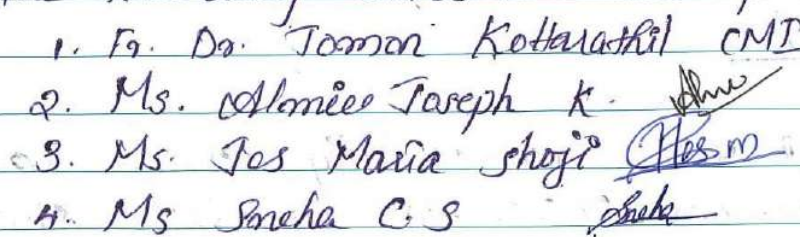 1. Fr. Dr. Jomon Kottarathil CMI
2. Ms. Almiee Joseph K.
3. Ms. Jes Maria Shoji Jesm
4. Ms Sneha C S Sneha